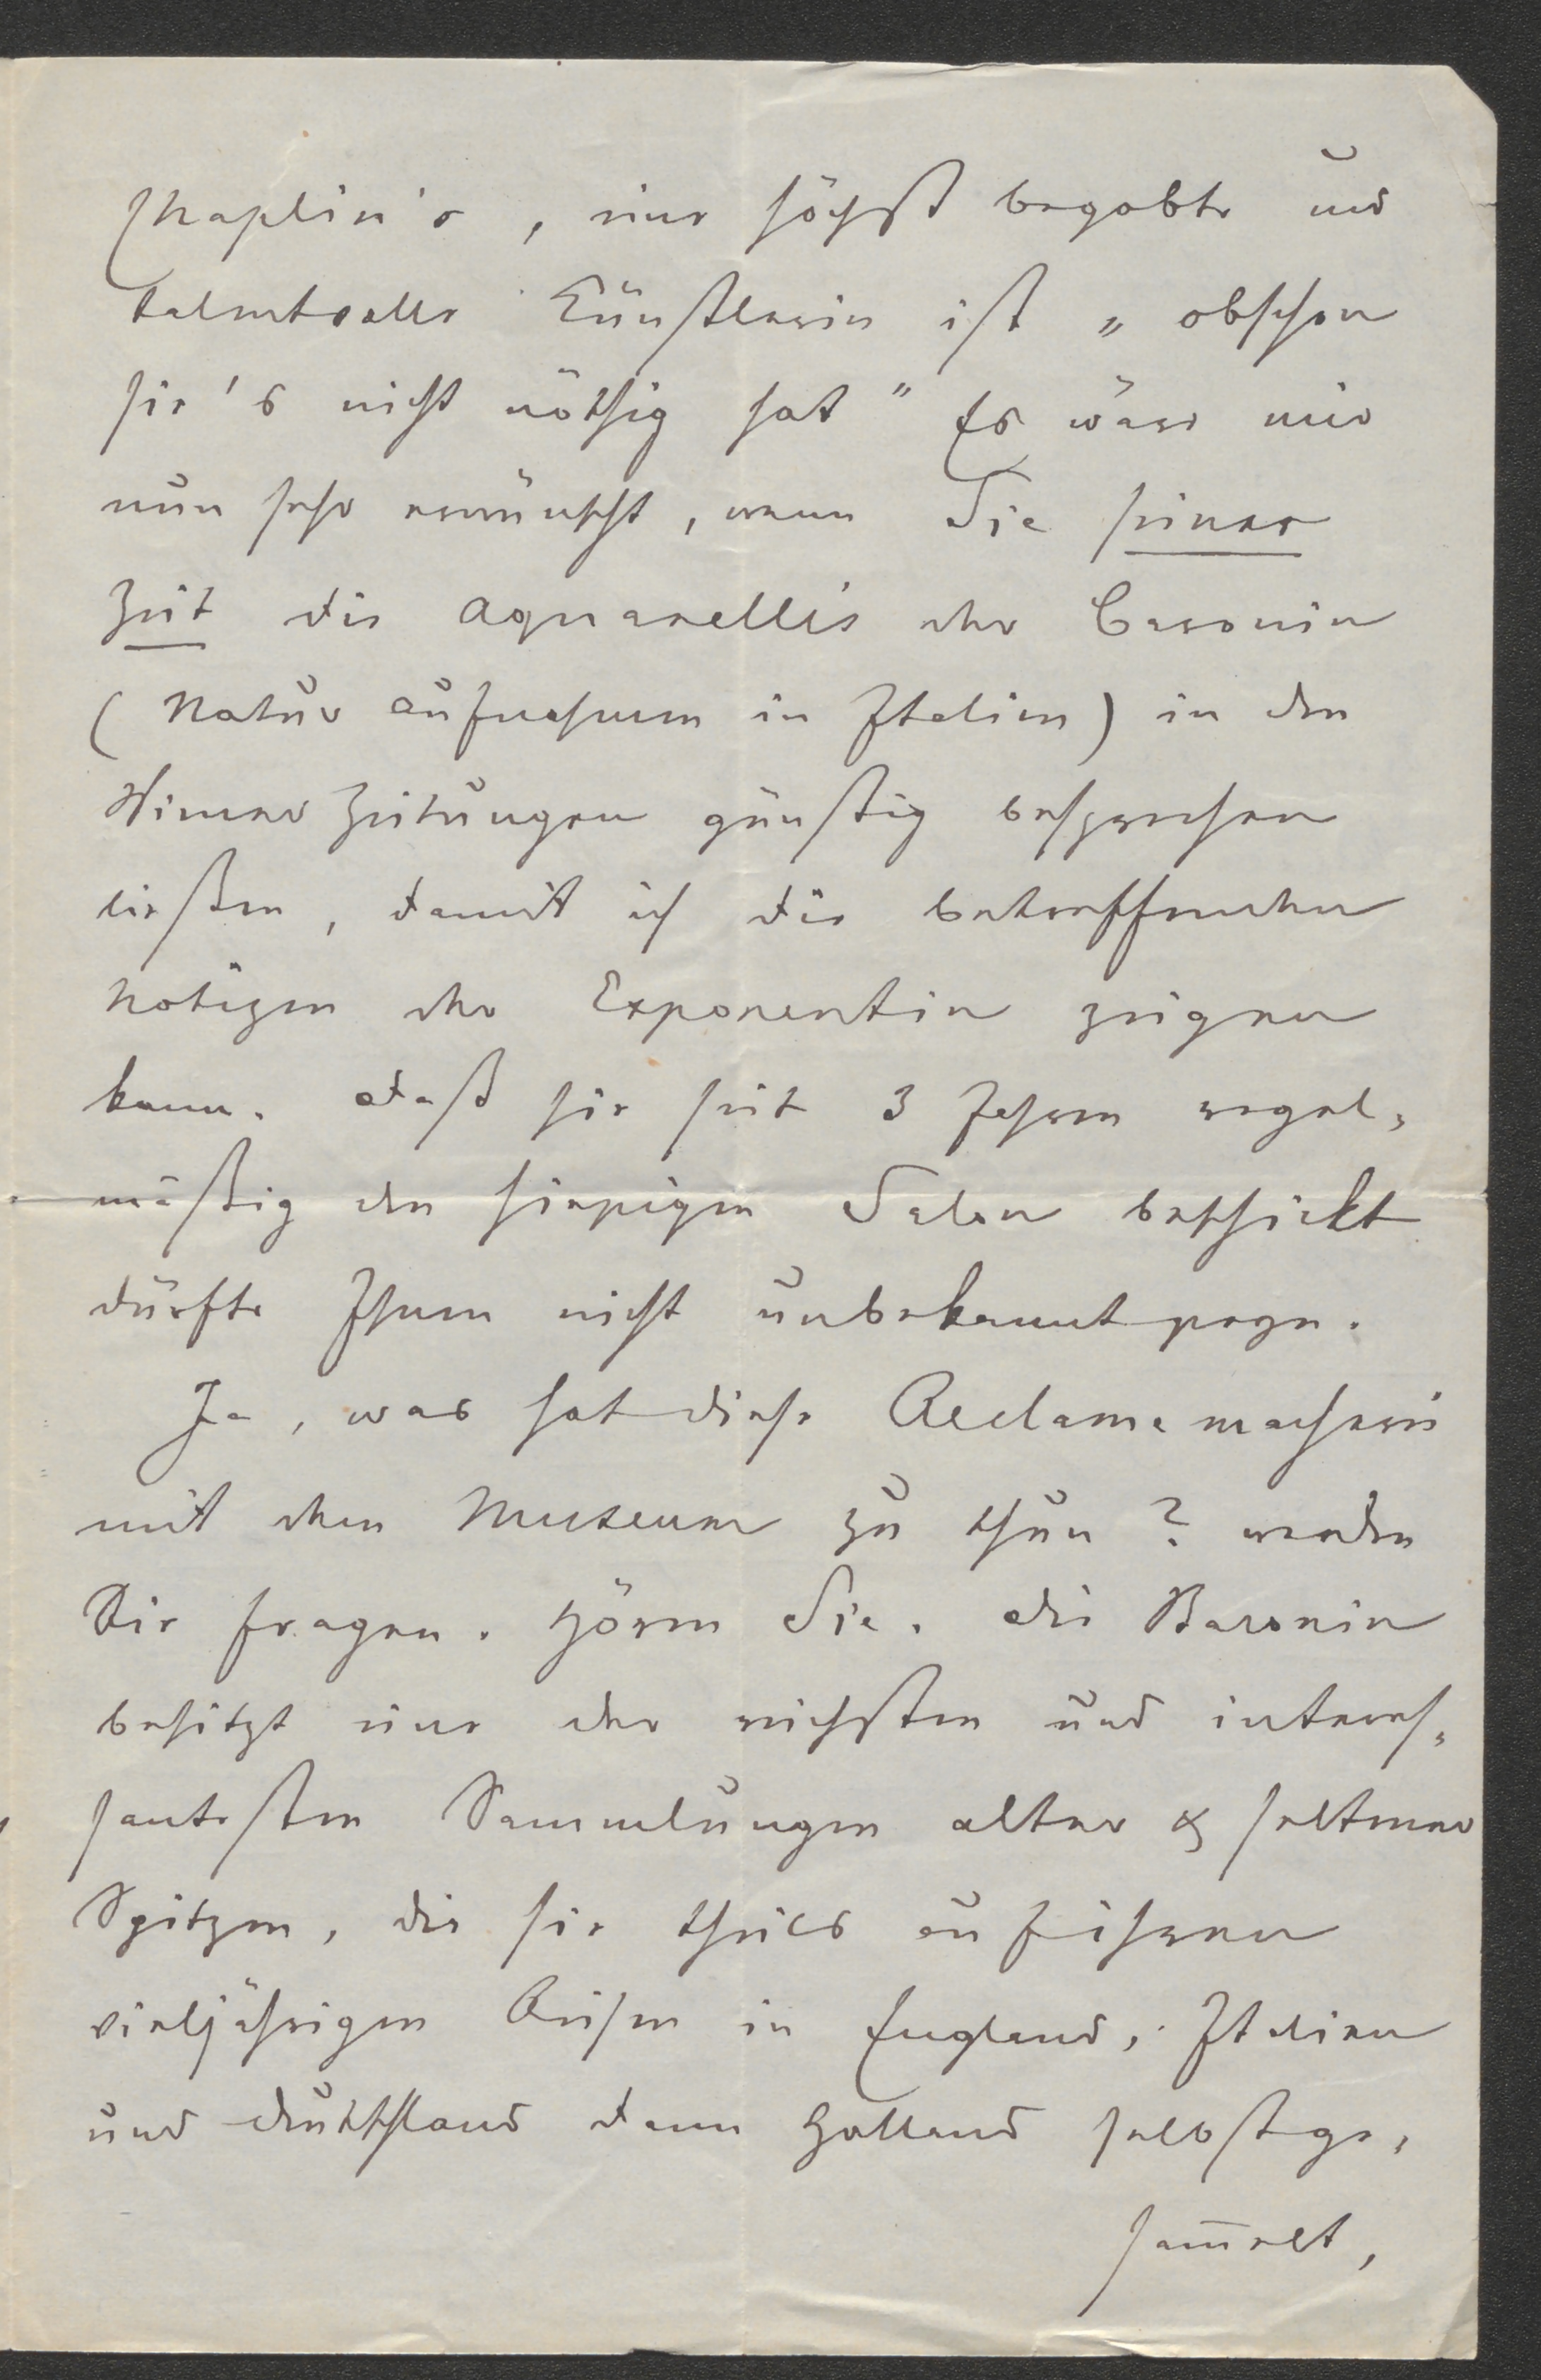 Chaplin's, eine höchst begabte und
talentvolle Künstlerin ist „obschon
sie's nicht nöthig hat" Es wäre mir
nun sehr erwünscht, wenn Sie seiner
Zeit die Aquarelle's der Baronin
(Natur Aufnahmen in Italien) in den
Wiener Zeitungen günstig besprechen
ließen, damit ich die betreffenden
Notizen der Exponentin zeigen
kann. Daß sie seit 3 Jahren regel-
mäßig den hiesigen Salon beschickt
dürfte Ihnen nicht unbekannt seyn.
Ja, was hat diese Reclamemacherei
mit dem Museum zu thun? werden
Sie fragen. Hören Sie. Die Baronin
besitzt eine der reichsten und interes-
santesten Sammlungen alter & seltener
Spitzen, die sie theils auf ihren
vieljährigen Reisen in England, Italien
und Deutschland dann Holland selbst ge-
sam̅elt,